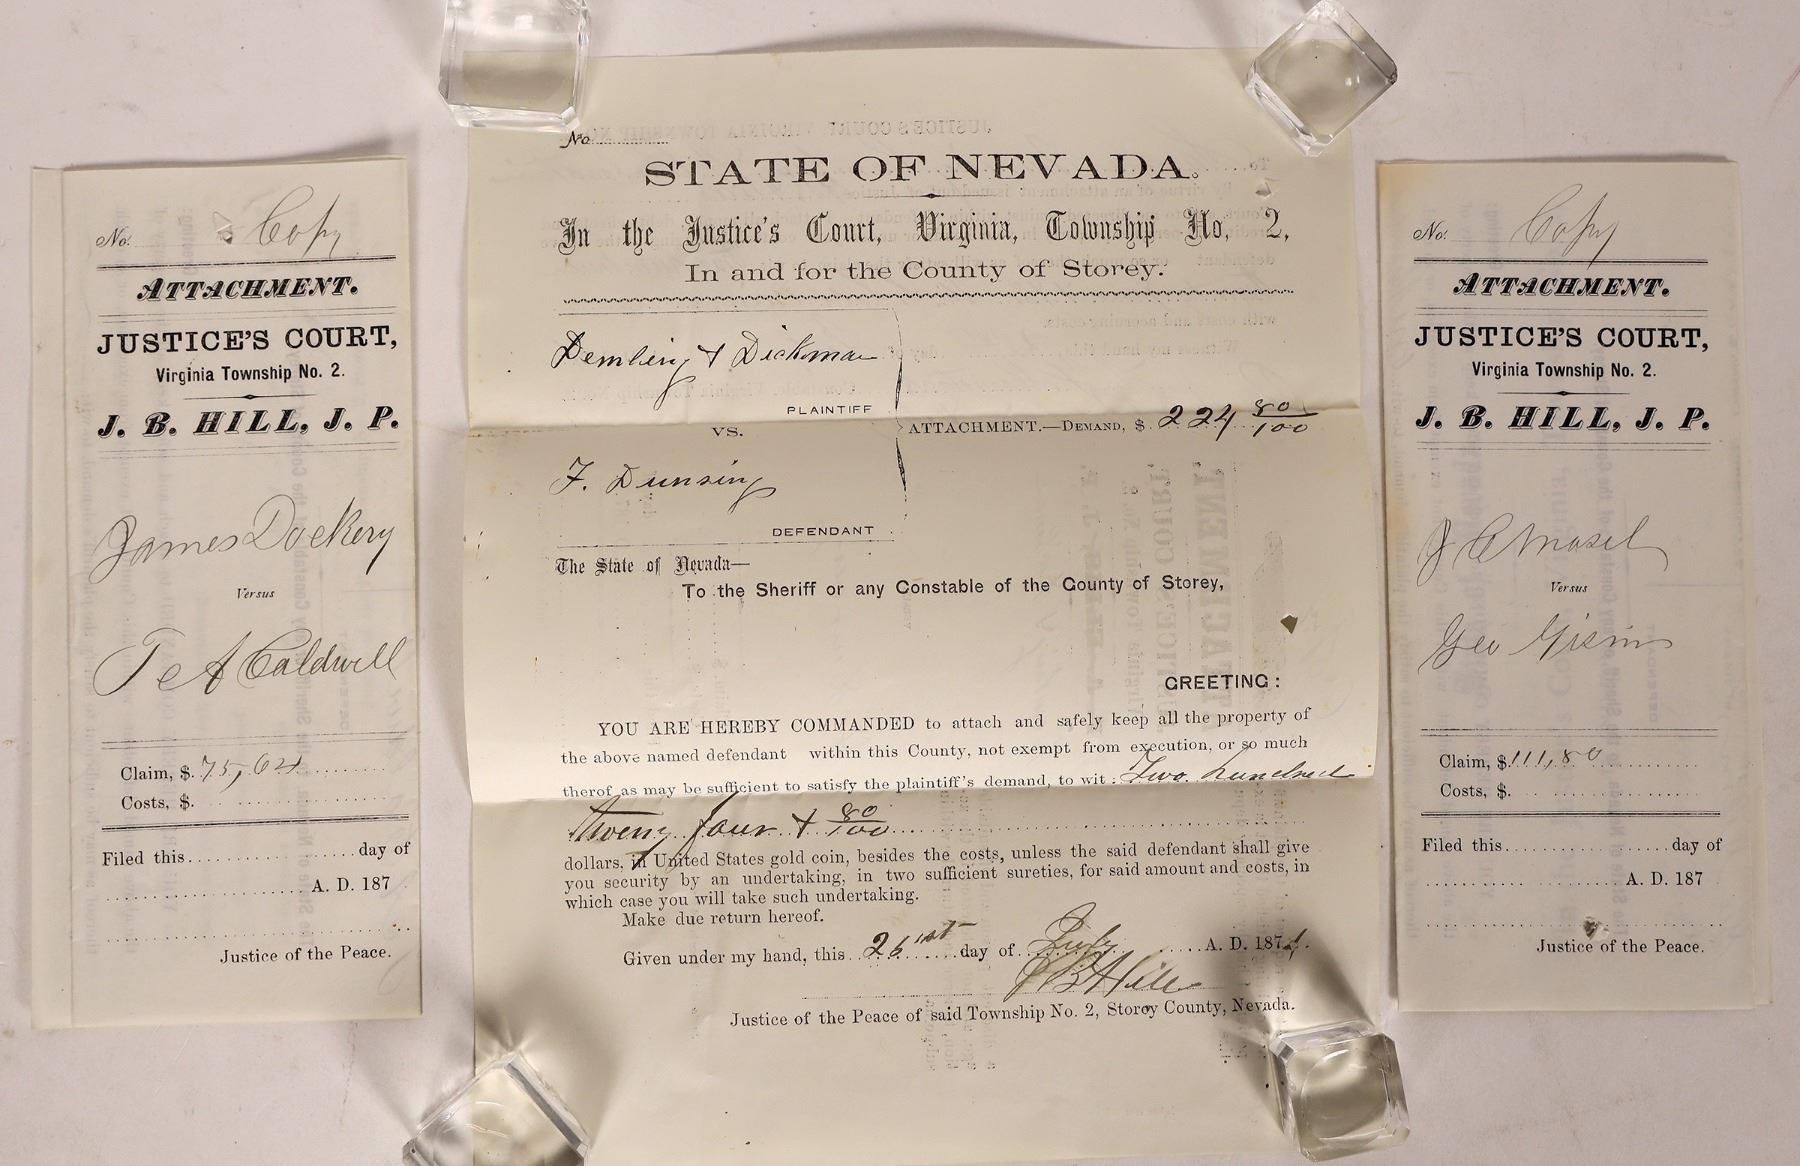 No. Copy
ATTACHMENT.
JUSTICE'S COURT,
Virginia Township No. 2.
J. B. HILL, J. P.
James Dockery
Versus
T A Caldwell
Claim, $. 75,64
Costs, $.
Filed this day of
A. D. 187
Justice of the Peace.
No
STATE OF NEVADA.
In the Justice's Court, Virginia, Township No. 2,
In and for the County of Storey.
& Dickman
PLAINTIFF
VS.
ATTACHMENT.—DEMAND, $ 224 80/100
F. Dunsing
DEFENDANT
The State of Nevada—
To the Sheriff or any Constable of the County of Storey,
GREETING:
YOU ARE HEREBY COMMANDED to attach and safely keep all the property of
the above named defendant within this County, not exempt from execution, or so much
therof as may be sufficient to satisfy the plaintiff's demand, to wit: Two hundred
twenty four & 80/100
dollars, in United States gold coin, besides the costs, unless the said defendant shall give
you security by an undertaking, in two sufficient sureties, for said amount and costs, in
which case you will take such undertaking.
Make due return hereof.
Given under my hand, this day of July A. D. 187
J B Hill
Justice of the Peace of said Township No. 2, Storey County, Nevada.
No. Copy
ATTACHMENT.
JUSTICE'S COURT,
Virginia Township No. 2.
J. B. HILL, J. P.
J C
Versus
Geo
Claim, $. 111,80
Costs, $.
Filed this day of
A. D. 187
Justice of the Peace.